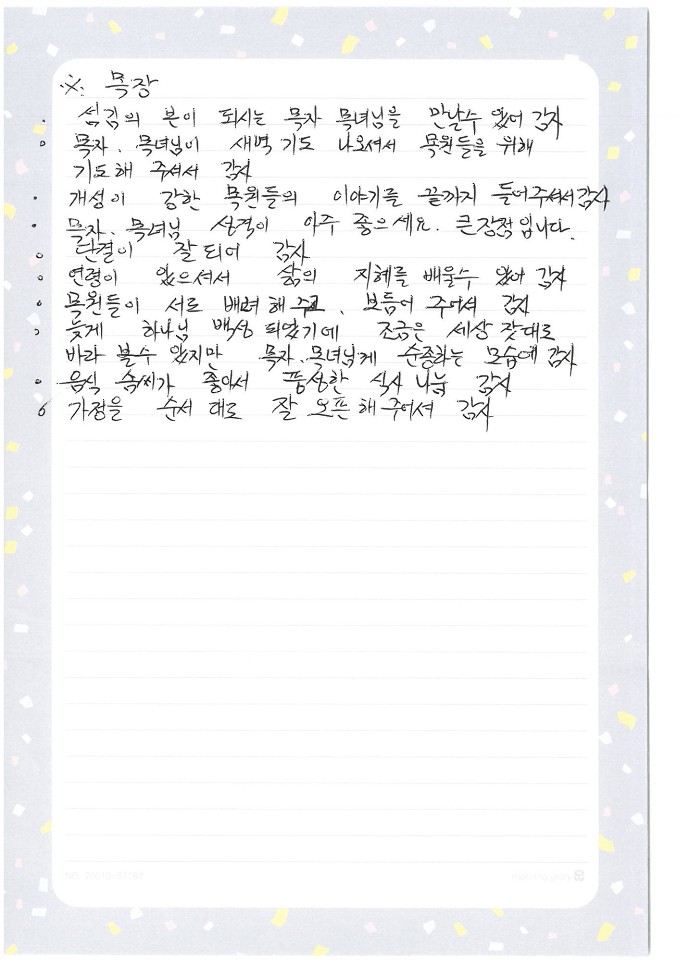 ※ 목장
· 섬김의 본이 되시는 목자 목녀님을 만날수 있어 감사
· 목자. 목녀님이 새벽기도 나오셔서 목원들을 위해
기도해 주셔서 감사
· 개성이 강한 목원들의 이야기를 끝까지 들어주셔서 감사
· 목자. 목녀님 성격이 아주 좋으세요. 큰장점입니다.
· 단결이 잘되어 감사
· 연령이 있으셔서 삶의 지혜를 배울수 있어 감사
· 목원들이 서로 배려해 주고. 보듬어 주어서 감사
· 늦게 하나님 백성 되었기에 조금은 세상 잣대로
바라 볼수 있지만 목자.목녀님께 순종하는 모습에 감사
· 음식 솜씨가 좋아서 풍성한 식사 나눔 감사
· 가정을 순서대로 잘 오픈해 주어서 감사
morning glory